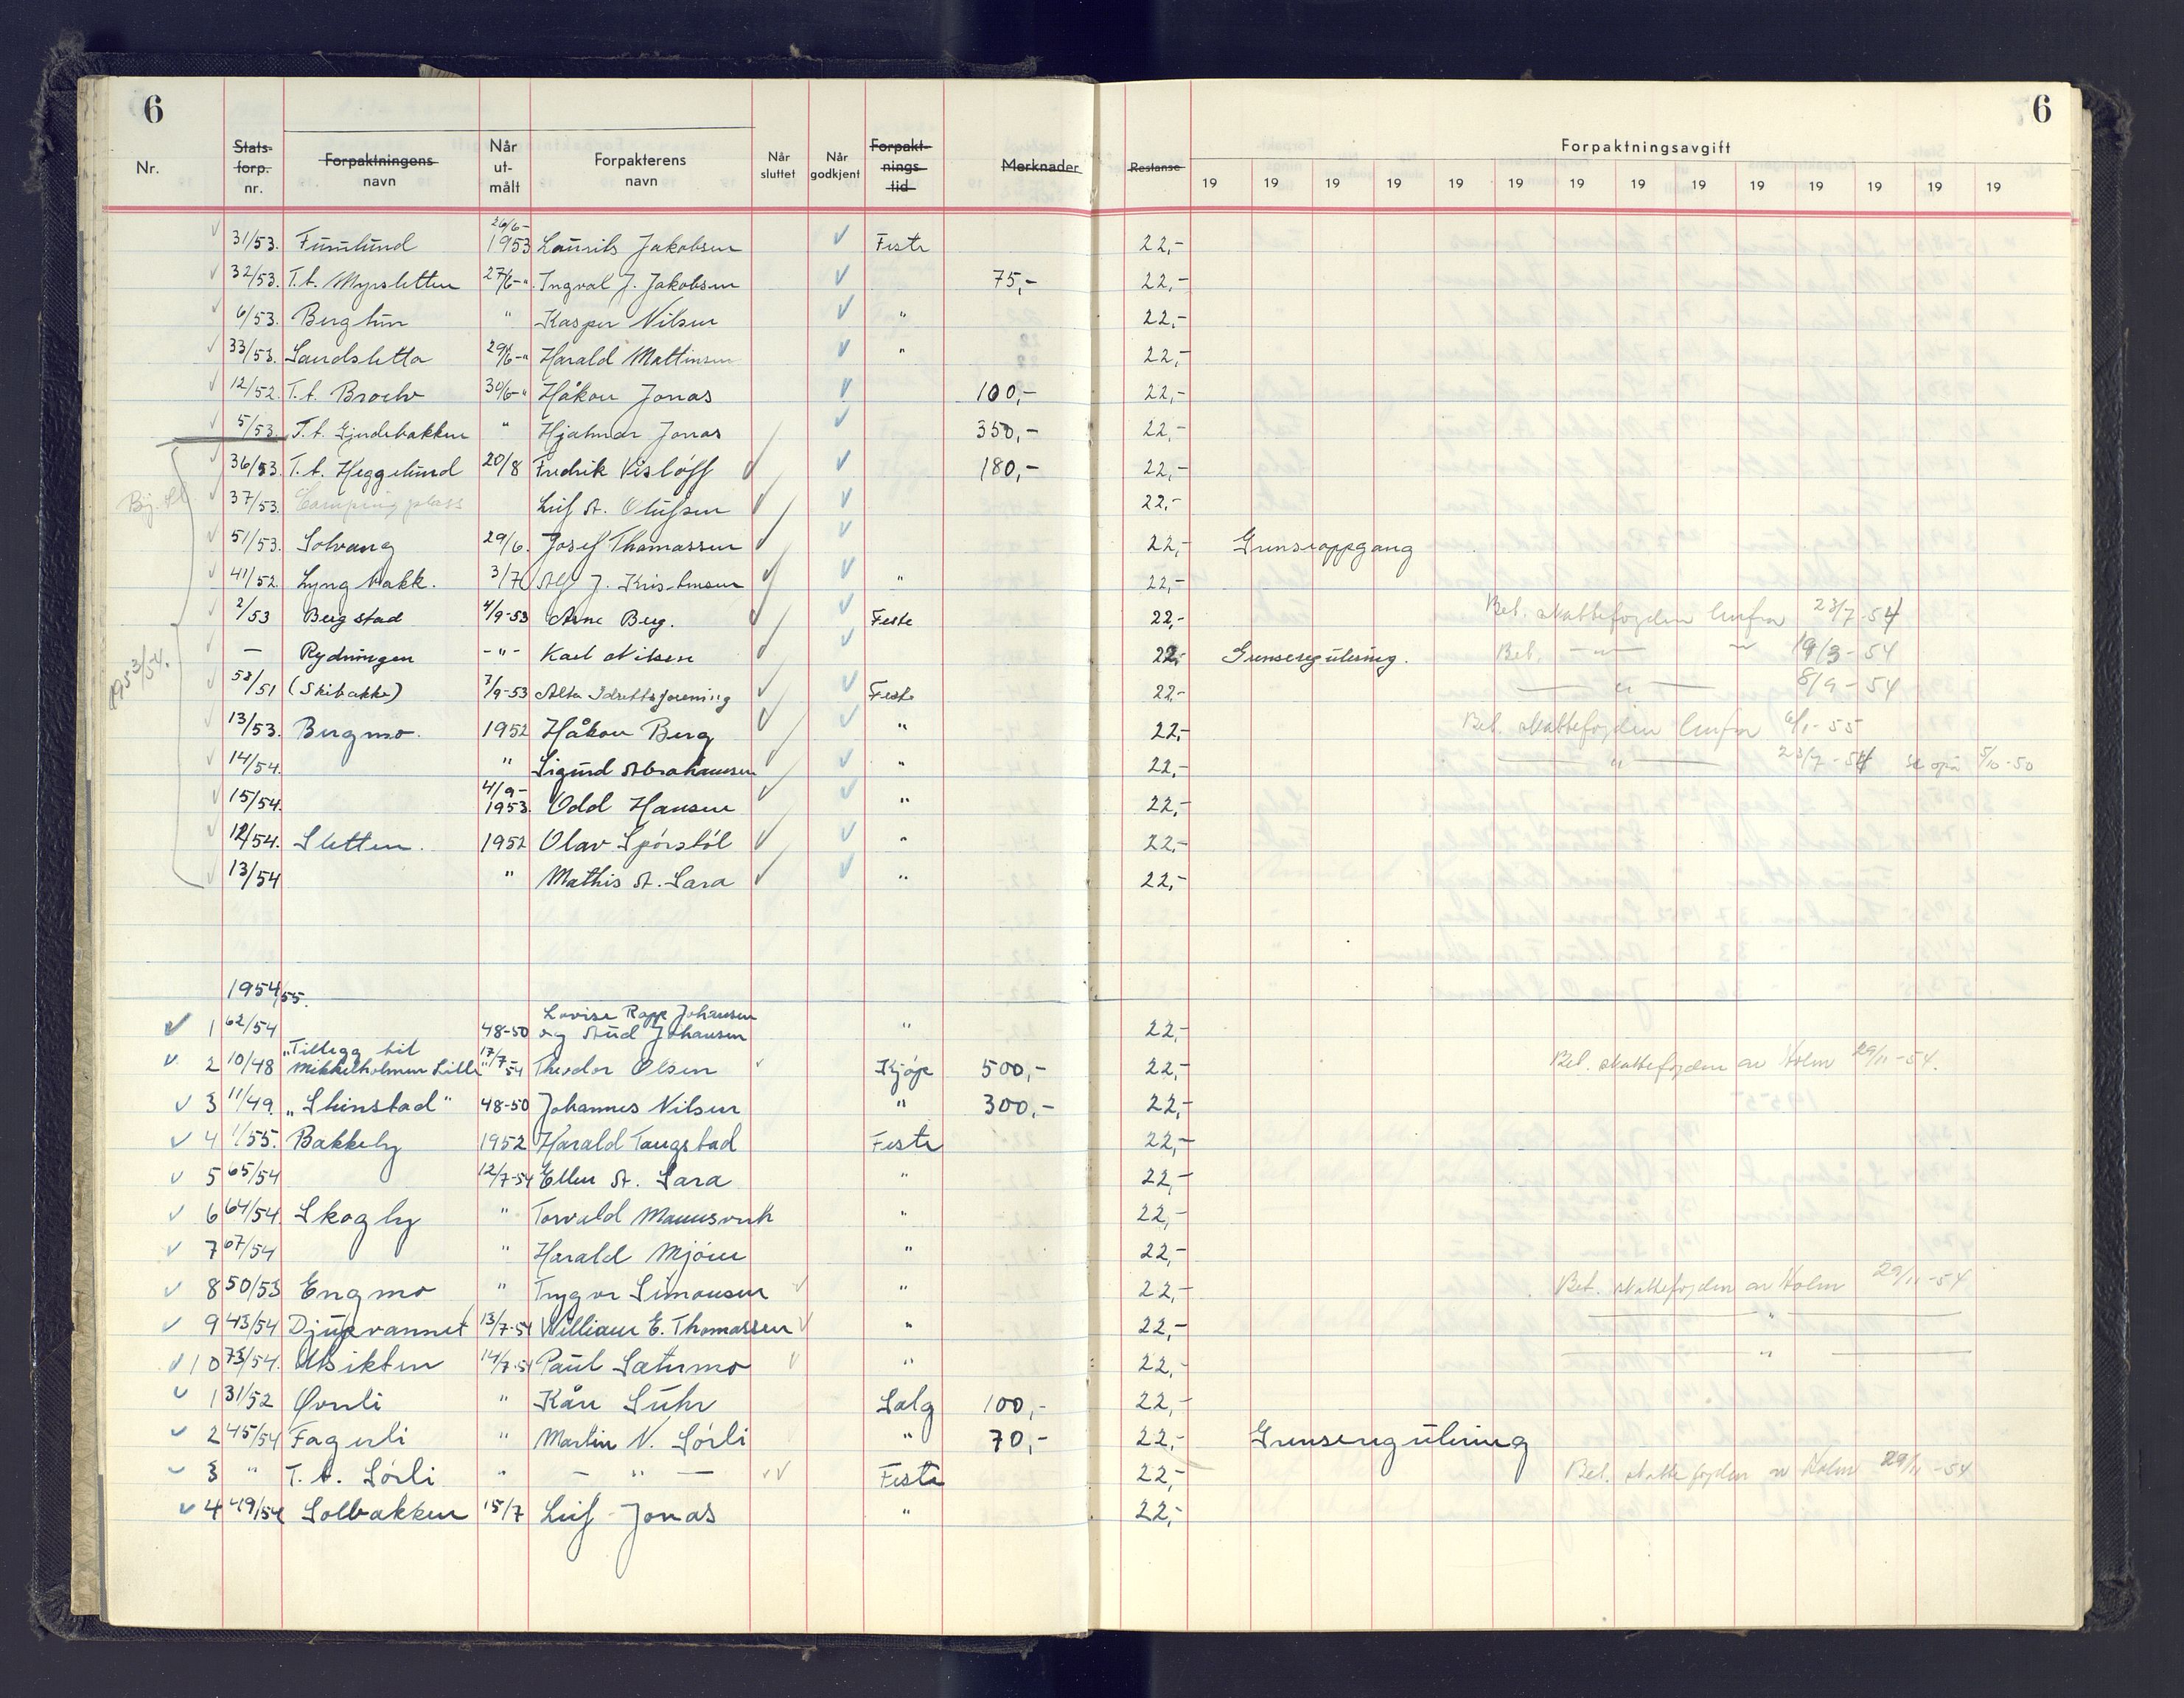 6
6
Nr.
Stats-forp. nr.
Forpaktningens navn
Når ut-målt
Forpakterens navn
Når sluttet
Når godkjent
Forpakt-nings-tid
Merknader
Restanse
Forpaktningsavgift
19 19 19 19 19 19 19 19 19 19 19 19 19 19
31/53. Furulund 26/6-1953 Laurits Jakobsen Feste 22,-
32/53. T.t. Myrsletten 27/6-" Ingval J. Jakobsen 75,- 22,-
6/53. Bergtun " Kasper Nilsen " 22,-
33/53. Sandsletta 29/6-" Harald Mattinsen " 22,-
12/52. T.t. 30/6-" Håkon Jonas 100,- 22,-
5/53. T.t. " Hjalmar Jonas 350,- 22,-
36/53. T.t. Heggelund 20/8 Fredrik Vislöff 180,- 22,-
37/53. Campingplass Leif A. Olufsen 22,-
51/53. Solvang 29/6. Josef Thomassen 22,- Grenseoppgang
41/52. Lyngbakk. 3/7 Alf J. Kristensen " 22,-
2/53 Bergstad 4/9-53 Arne Berg. Feste 22,- Bet. skattefogden 23/7-54
— Rydningen -"- Karl Nilsen 22,- Grenseregulering. Bet. —"— " 19/3-54
58/51 (Skibakke) 7/9-53 Alta Idrettsforening Feste 22,- —"— 8/9-54
1953/54.
13/53. Bergmo. 1952 Håkon Berg " 22,- Bet. skattefogden 6/1-55
14/54. " Sigurd Abrahamsen " 22,- —"— 23/7-54 5/10-50
15/54. 4/9-1953. Odd Hansen " 22,-
12/54. Sletten. 1952 Olav Spörstöl " 22,-
13/54 " Mathis A. Sara " 22,-
1954/55.
1 62/54 48-50 Lovise Rapp Johansen og Aud Johansen " 22,-
2 10/48 "Tillegg til Mikkelholmen Lille" 17/7-54 Theodor Olsen Kjøp 500,- 22,- Bet. skattefogden av Holm 29/11-54.
3 11/49. "Steinstad" 48-50 Johannes Nilsen " 300,- 22,-
4 1/55. Bakkely 1952 Harald Tangstad Feste 22,-
5 65/54 12/7-54 Ellen A. Sara " 22,-
6 64/54 Skogly " Torvald " 22,-
7 67/54 " Harald Mjöen " 22,-
8 50/53 Engmo " Trygve Simonsen " 22,- Bet. skattefogden av Holm 29/11-54
9 43/54 Djupvannet 13/7-54 William E. Thomassen " 22,- —"—
10 73/54. Utsikten 14/7-54 Paul Sætermo " 22,- —"—
1 31/52 Øvrli " Kåre Suhr Salg 100,- 22,-
2 45/54 Fagerli " Martin N. Sörli " 70,- 22,- Grenseregulering
3 " T.t. Sörli " —"— Feste 22,- Bet. skattefogden av Holm 29/11-54
4 49/54 Solbakken 15/7 Leif Jonas " 22,-